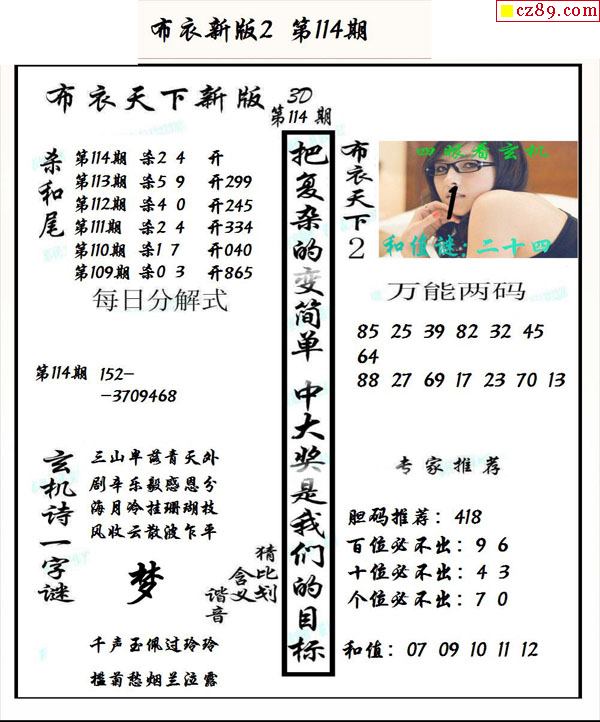 cz89.com
布衣新版2 第114期
布衣天下新版 3D
第114期
杀和尾
第114期 杀2 4 开
第113期 杀5 9 开299
第112期 杀4 0 开245
第111期 杀2 4 开334
第110期 杀1 7 开040
第109期 杀0 3 开865
每日分解式
第114期 152-
-3709468
玄机诗一字谜
三山半落青天外
剧辛乐毅感恩分
海月冷挂珊瑚枝
风收云散波乍平
梦
猜比划
含义
谐音
千声玉佩过玲玲
槛菊愁烟兰泣露
把复杂的变简单 中大奖是我们的目标
布衣天下2
四眼看玄机
1
和值谜:二十四
万能两码
85 25 39 82 32 45
64
88 27 69 17 23 70 13
专家推荐
胆码推荐: 418
百位必不出: 9 6
十位必不出: 4 3
个位必不出: 7 0
和值: 07 09 10 11 12